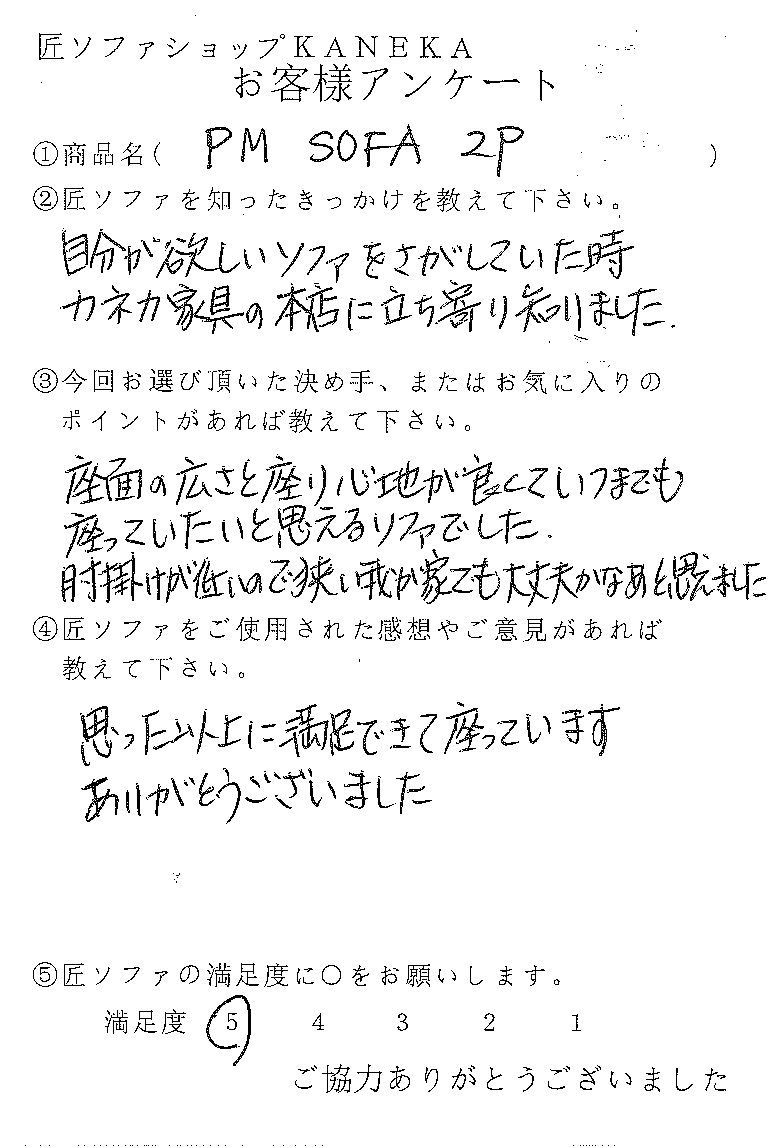 匠ソファショップKANEKA
お客様アンケート
①商品名( PM SOFA 2P )
②匠ソファを知ったきっかけを教えて下さい。
自分が欲しいソファをさがしていた時
カネカ家具の本店に立ち寄り知りました.
③今回お選び頂いた決め手、またはお気に入りの
ポイントがあれば教えて下さい。
座面の広さと座り心地が良くていつまでも
座っていたいと思えるソファでした.
肘掛けが低いので狭い我が家でも大丈夫かなあと思えました
④匠ソファをご使用された感想やご意見があれば
教えて下さい。
思った以上に満足できて座っています
ありがとうございました
⑤匠ソファの満足度に〇をお願いします。
満足度 5 4 3 2 1
ご協力ありがとうございました